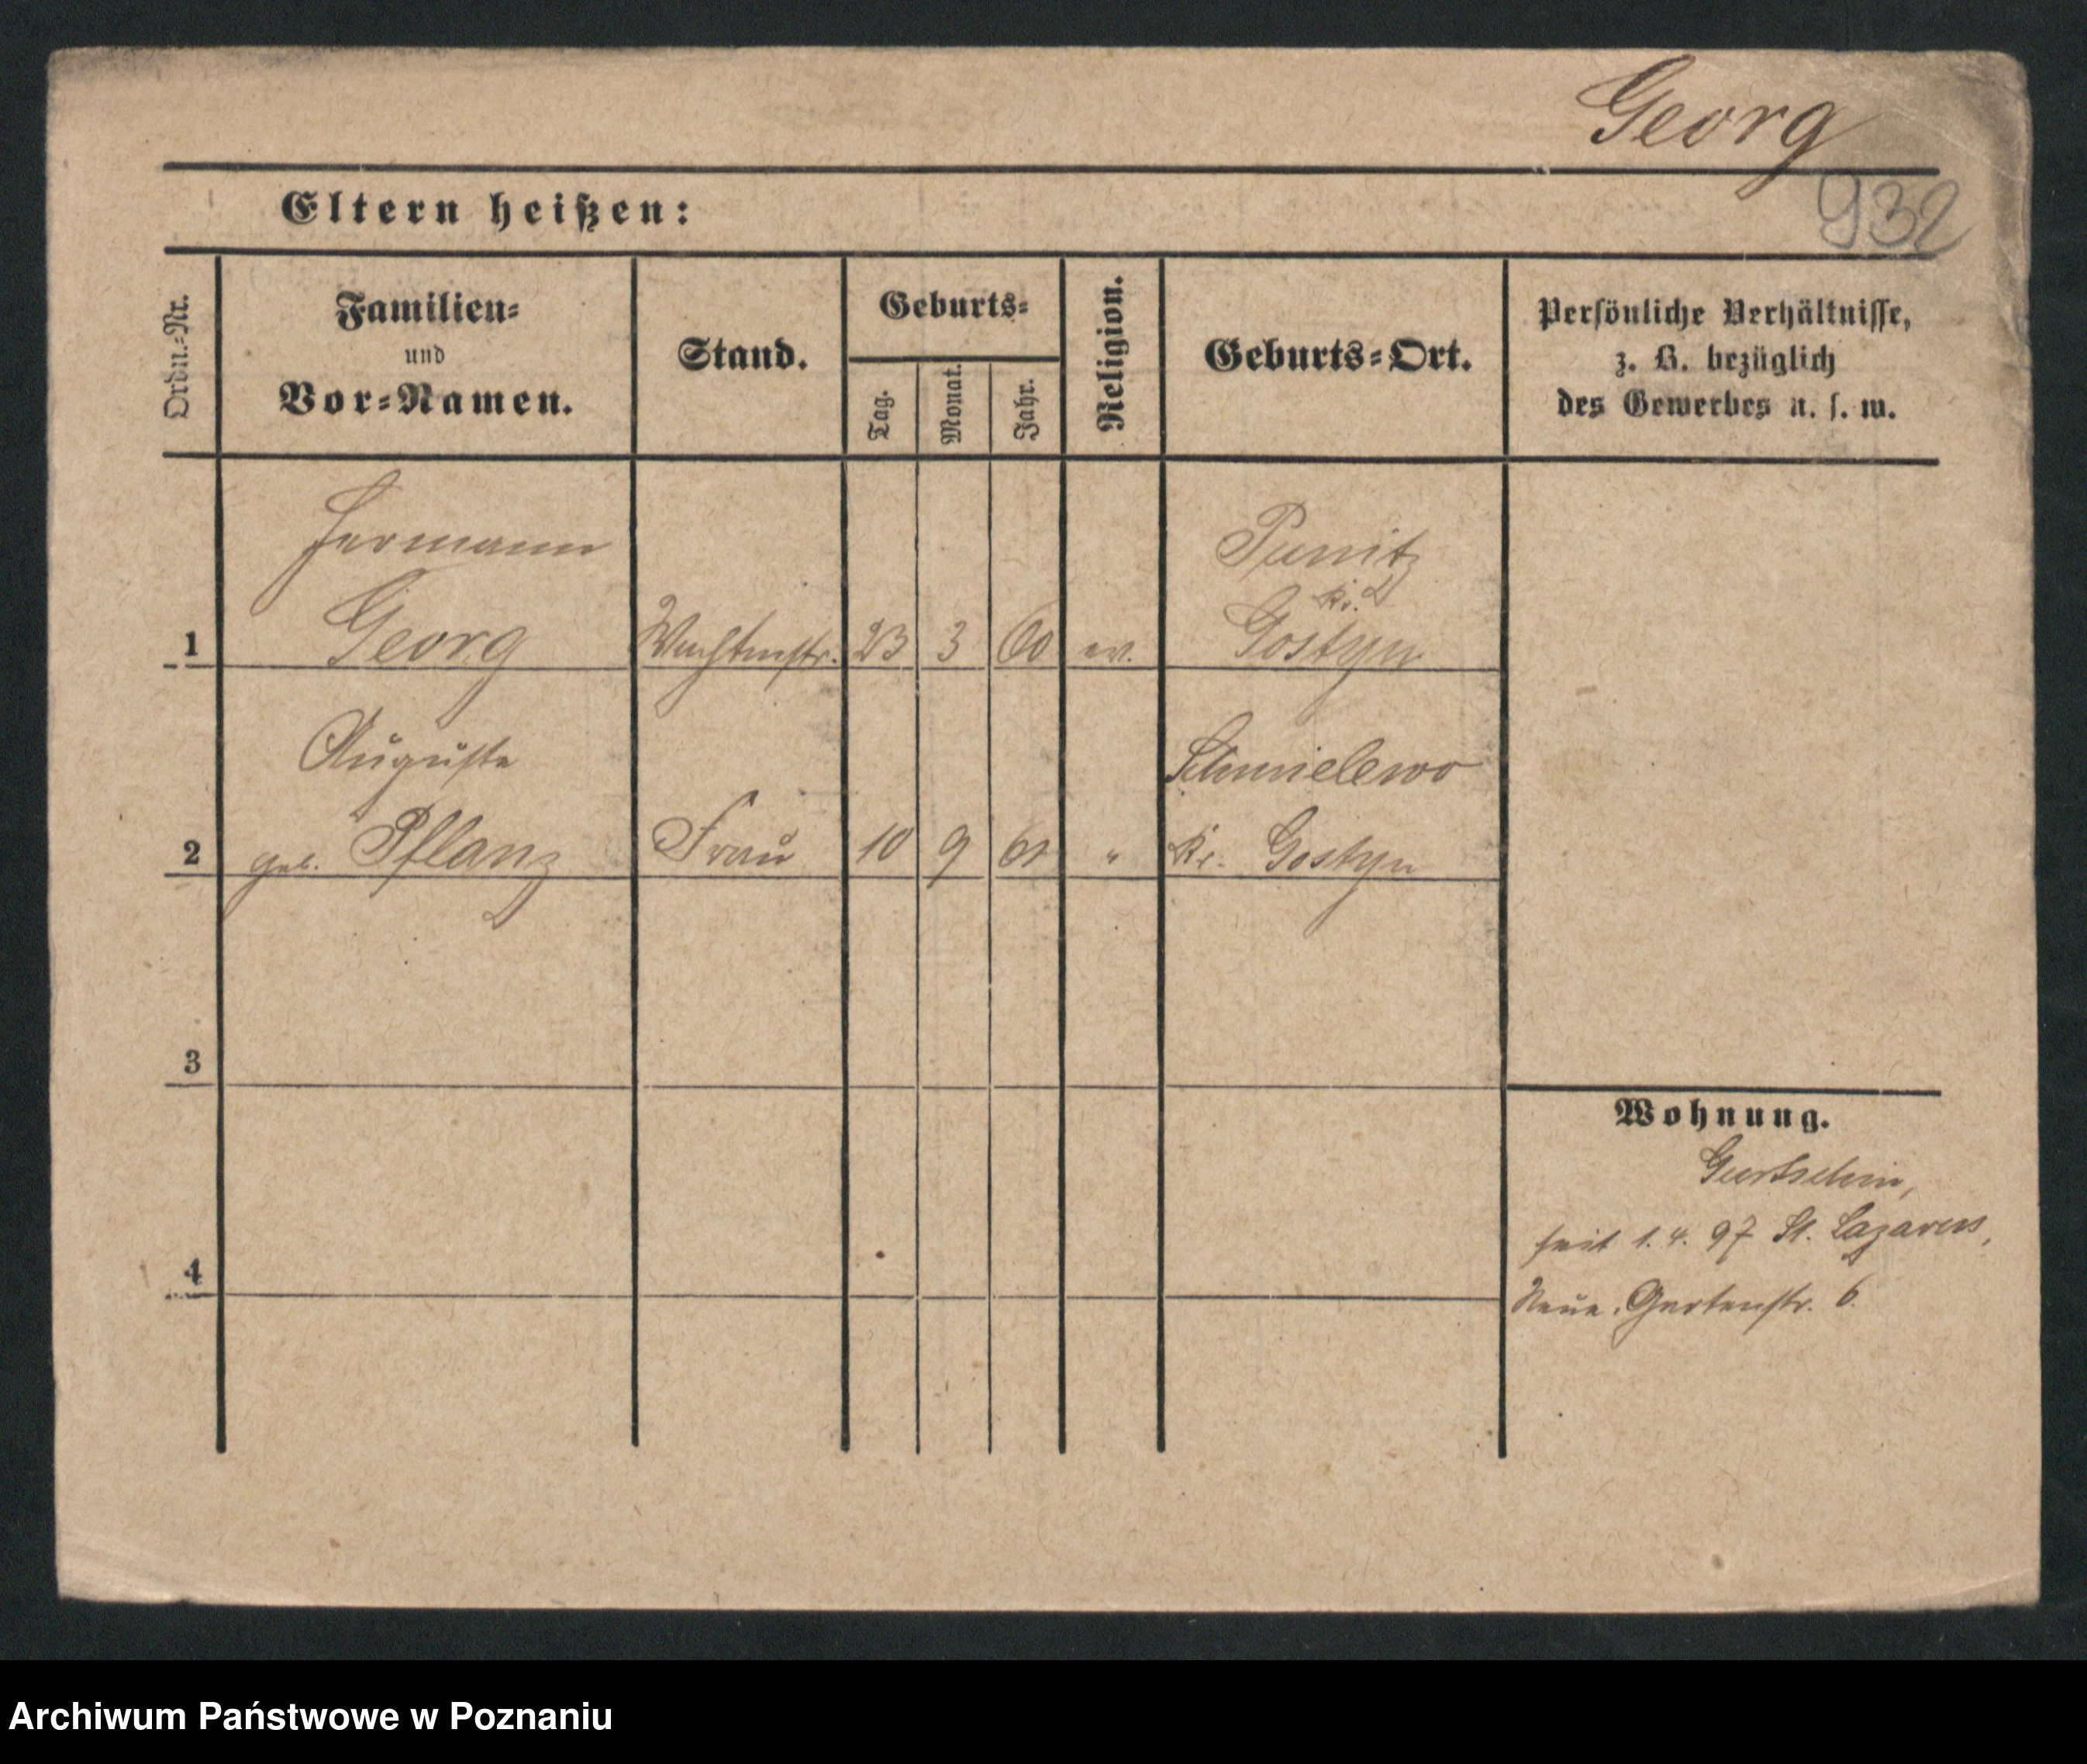 Georg
932
Eltern heißen:
Ordn.-Nr.
Familien-
und
Vor-Namen.
Stand.
Geburts-
Tag.
Monat.
Jahr.
Religion.
Geburts-Ort.
Persönliche Verhältnisse,
z. B. bezüglich
des Gewerbes u. s. w.
Hermann
Punitz
Kr.
1 Georg Wachtmstr. 23 3 60 ev. Gostyn
Auguste
2 geb. Pflanz Frau 10 9 61 " Kr. Gostyn
3
Wohnung.
Gurtschin,
seit 1. 4. 97 St. Lazarus,
4
Neue Gartenstr. 6.
Archiwum Państwowe w Poznaniu